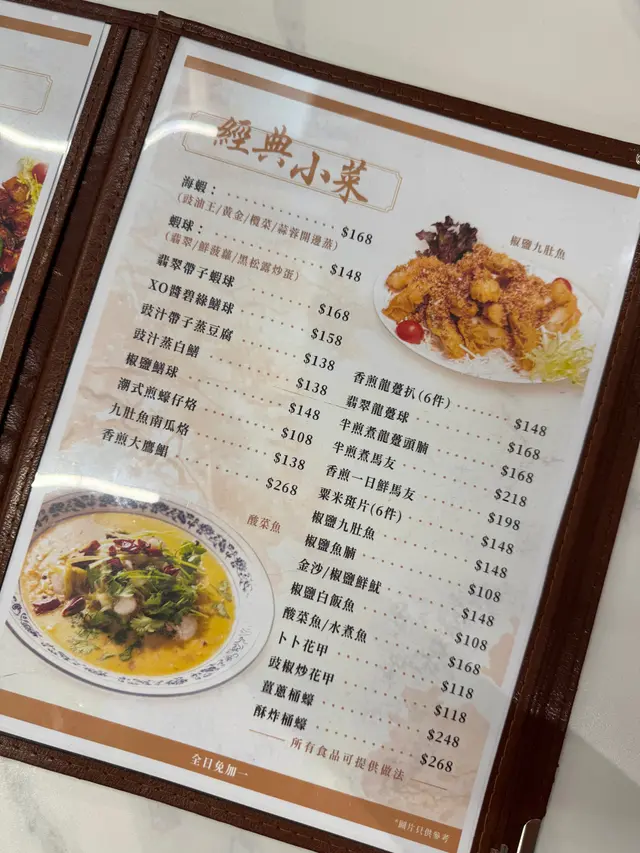 經典小菜
海蝦： $168
(豉油王/黃金/欖菜/蒜蓉開邊蒸)
蝦球： $148
(翡翠/鮮菠蘿/黑松露炒蛋)
翡翠帶子蝦球 $168
XO醬碧綠鱔球 $158
豉汁帶子蒸豆腐 $138
豉汁蒸白鱔 $138
椒鹽鱔球 $148
潮式煎蠔仔烙 $108
九肚魚南瓜烙 $138
香煎大鷹鯧 $268
椒鹽九肚魚
香煎龍躉扒(6件) $148
翡翠龍躉球 $168
半煎煮龍躉頭腩 $168
半煎煮馬友 $218
香煎一日鮮馬友 $198
粟米斑片(6件) $148
椒鹽九肚魚 $148
椒鹽魚腩 $108
金沙/椒鹽鮮魷 $148
椒鹽白飯魚 $108
酸菜魚/水煮魚 $168
卜卜花甲 $118
豉椒炒花甲 $118
薑蔥桶蠔 $248
酥炸桶蠔 $268
所有食品可提供做法
酸菜魚
全日免加一
*圖片只供參考